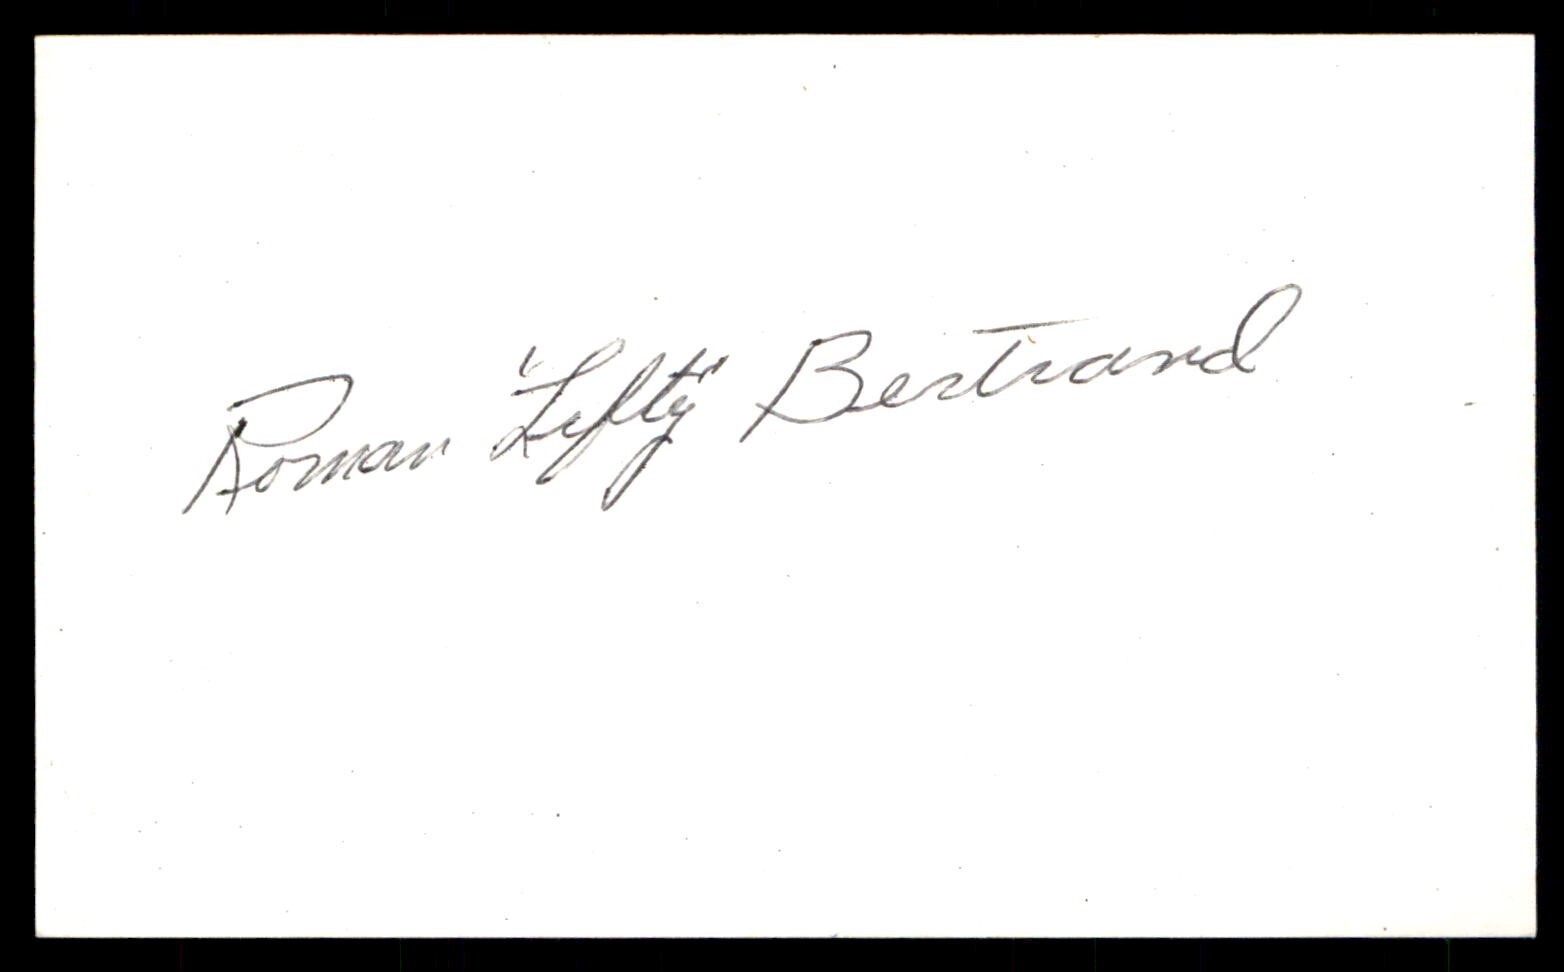 Roman "Lefty" Bertrand